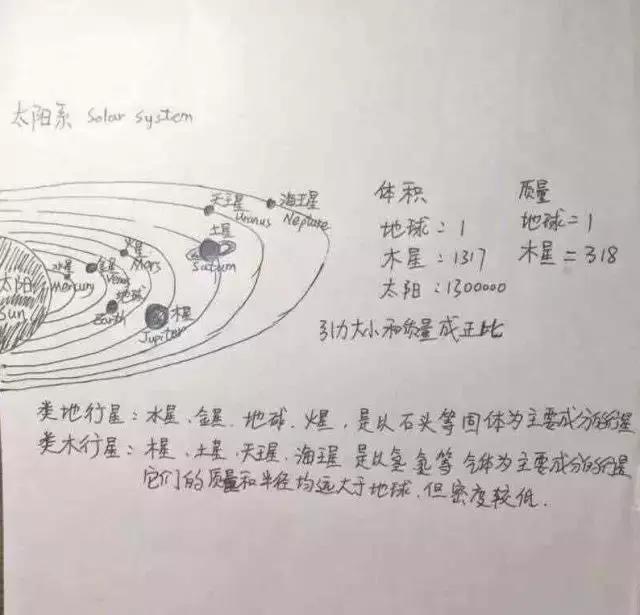 太阳系 Solar system
天王星
Uranus
海王星
Neptune
土星
Saturn
火星
Mars
水星
Mercury
金星
Venus
地球
Earth
木星
Jupiter
太阳
Sun
体积
地球:1
木星:1317
太阳:1300000
质量
地球=1
木星=318
引力大小和质量成正比
类地行星:水星、金星、地球、火星,是以石头等固体为主要成分的行星
类木行星:木星、土星、天王星、海王星 是以氢 氦等 气体为主要成分的行星
它们的质量和半径均远大于地球,但密度较低.